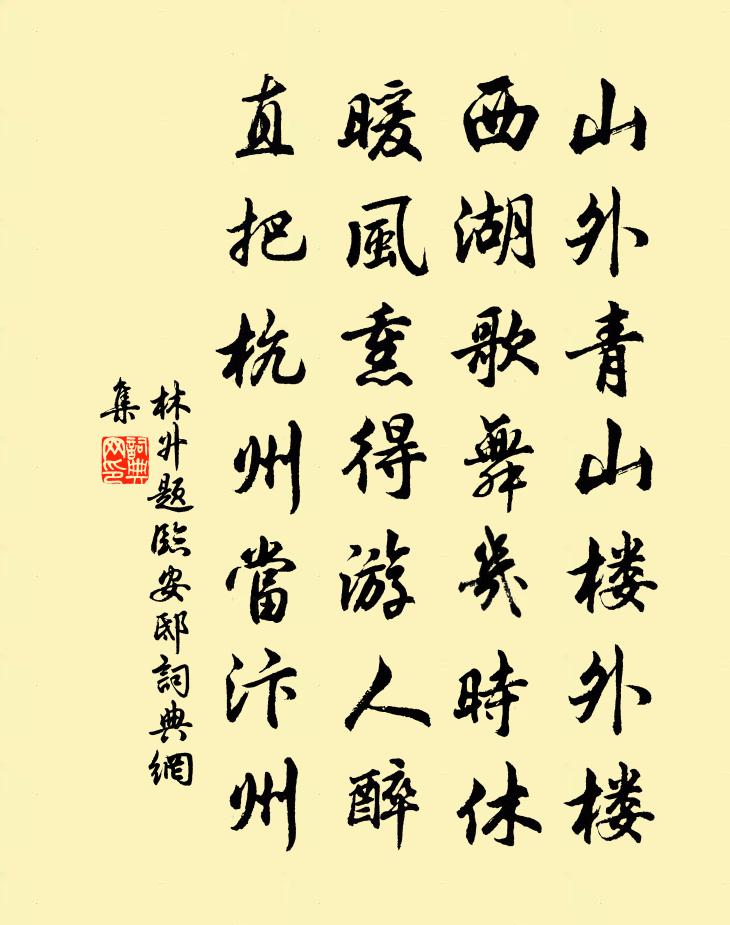 山外青山楼外楼
西湖歌舞幾時休
暖風熏得游人醉
直把杭州當汴州
林升题臨安邸詞典網
集
詞典
网印